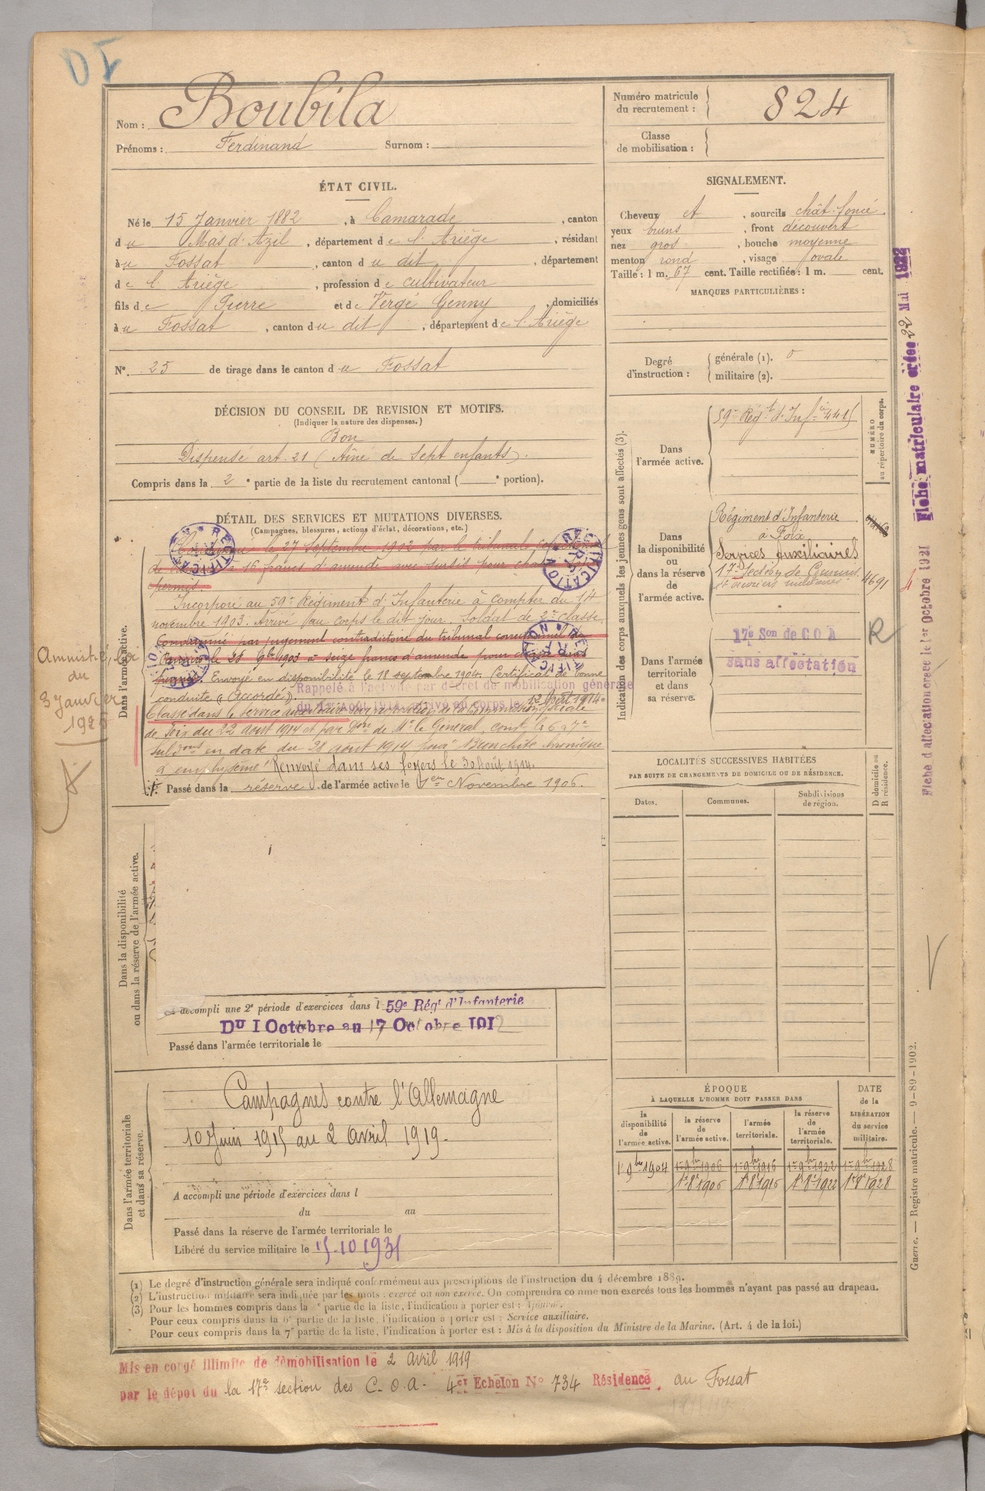 Nom : Boubila
Prénoms : Ferdinand Surnom :
Numéro matricule du recrutement : 824
Classe de mobilisation :
ÉTAT CIVIL.
Né le 15 Janvier 1882, à Camarade, canton
du Mas d'Azil, département de l'Ariège, résidant
à u Fossat, canton du dit, département
de l'Ariège, profession de cultivateur
fils de Pierre et de Vergé Genny, domiciliés
à u Fossat, canton du dit, département de l'Ariège
N° 25 de tirage dans le canton du Fossat
DÉCISION DU CONSEIL DE REVISION ET MOTIFS.
(Indiquer la nature des dispenses.)
Bon
Dispensé art. 21 (Aîné de sept enfants).
Compris dans la 2e partie de la liste du recrutement cantonal ( e portion).
DÉTAIL DES SERVICES ET MUTATIONS DIVERSES.
(Campagnes, blessures, actions d'éclat, décorations, etc.)
RECTIFICATION
le 27 Septembre 1902 par le tribunal
de 16 francs d'amende avec sursis pour chasse sans
permis
Incorporé au 59e Régiment d'Infanterie à compter du 14
novembre 1903. Arrivé au corps le dit jour, soldat de 2e classe.
Condamné par jugement contradictoire du tribunal correctionnel de
Pamiers le 21 9bre 1903 à seize francs d'amende pour chasse sans
permis. Envoyé en disponibilité le 18 septembre 1904. Certificat de bonne
conduite "Accordé".
Rappelé à l'activité par décret de mobilisation générale
du 1er Août 1914. Arrivé au corps le 12 Août 1914.
Classé dans le service auxiliaire
de Foix du 22 août 1914 et par Don de M. le Général Cont la 67e
subon en date du 21 août 1914 pour Bronchite chronique
& emphysème. Renvoyé dans ses foyers le 30 Août 1914.
Passé dans la réserve de l'armée active le 1er Novembre 1906.
Dans l'armée active.
Amnistié, Loi
du
3 Janvier
1925
Dans la disponibilité
ou dans la réserve de l'armée active.
accompli une 2e période d'exercices dans l 59e Régt d'Infanterie
Du 1 Octobre au 17 Octobre 1912
Passé dans l'armée territoriale le
Dans l'armée territoriale
et dans sa réserve.
Campagnes contre l'Allemagne
10 Juin 1915 au 2 avril 1919.
A accompli une période d'exercices dans l
du au
Passé dans la réserve de l'armée territoriale le
Libéré du service militaire le 15-10 1931
SIGNALEMENT.
Cheveux et, sourcils chât. foncé
yeux bruns, front découvert
nez gros, bouche moyenne
menton rond, visage ovale
Taille : 1 m. 67 cent. Taille rectifiée : 1 m. cent.
MARQUES PARTICULIÈRES :
Degré d'instruction : générale (1). 0
militaire (2).
Indication des corps auxquels les jeunes gens sont affectés (3).
NUMÉRO au répertoire du corps.
Dans l'armée active.
59e Régt d'Infie
Dans la disponibilité ou dans la réserve de l'armée active.
Régiment d'Infanterie
à Foix
Services auxiliaires
17e Section de Commis
et ouvriers militaires
4691
Dans l'armée territoriale et dans sa réserve.
17e Son de COA
sans affectation
R
LOCALITÉS SUCCESSIVES HABITÉES
PAR SUITE DE CHANGEMENTS DE DOMICILE OU DE RÉSIDENCE.
Dates. Communes. Subdivisions de région.
D domicile ou R résidence.
ÉPOQUE
À LAQUELLE L'HOMME DOIT PASSER DANS
la disponibilité de l'armée active.
la réserve de l'armée active.
l'armée territoriale.
la réserve de l'armée territoriale.
DATE de la LIBÉRATION du service militaire.
1er 9bre 1904 1er 9bre 1906 1er 9bre 1916 1er 9bre 1922 1er 9bre 1928
1er 8e 1906 1er 8e 1916 1er 8e 1922 1er 8e 1928
Fiche matriculaire créée 22 Mai 1922
Fiche d'affectation créée le 1er Octobre 1921
Guerre. — Registre matricule. — 9-89-1902.
(1) Le degré d'instruction générale sera indiqué conformément aux prescriptions de l'instruction du 4 décembre 1889.
(2) L'instruction militaire sera indiquée par les mots : exercé ou non exercé. On comprendra comme non exercés tous les hommes n'ayant pas passé au drapeau.
(3) Pour les hommes compris dans la e partie de la liste, l'indication à porter est : Ajourné.
Pour ceux compris dans la 6e partie de la liste, l'indication à porter est : Service auxiliaire.
Pour ceux compris dans la 7e partie de la liste, l'indication à porter est : Mis à la disposition du Ministre de la Marine. (Art. 4 de la loi.)
Mis en congé illimité de démobilisation le 2 avril 1919
par le dépôt du la 17e section des C.O.A. 4er Echelon N° 734 Résidence au Fossat